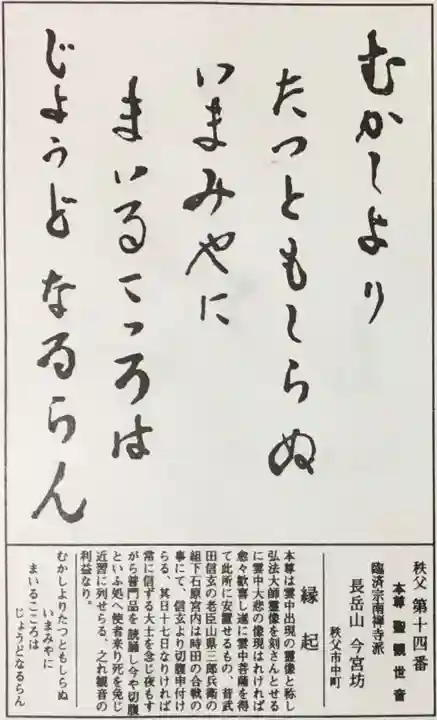 むかしより
たつともしらぬ
いまみやに
まいるこゝろは
じょうどなるらん
秩父 第十四番
本尊 聖観世音
臨済宗南禅寺派
長岳山 今宮坊
秩父市中町
縁起
本尊は雲中出現の霊像と称し
弘法大師霊像を刻さんとせる
に雲中大悲の像現はれければ
愈々歓喜し遂に雲中菩薩を得
て此所に安置せるもの、昔武
田信玄の老臣山県三郎兵衛の
組下石原宮内は時田の合戦の
事にて、信玄より切腹申付け
らる、其日十七日なりければ
常に信ずる大士を念じ夜もす
がら普門品を読誦し今や切腹
といふ処へ使者来り死を免じ
近習に列せらる、之れ観音の
利益なり。
むかしよりたつともしらぬ
いまみやに
まいるこころは
じょうどなるらん